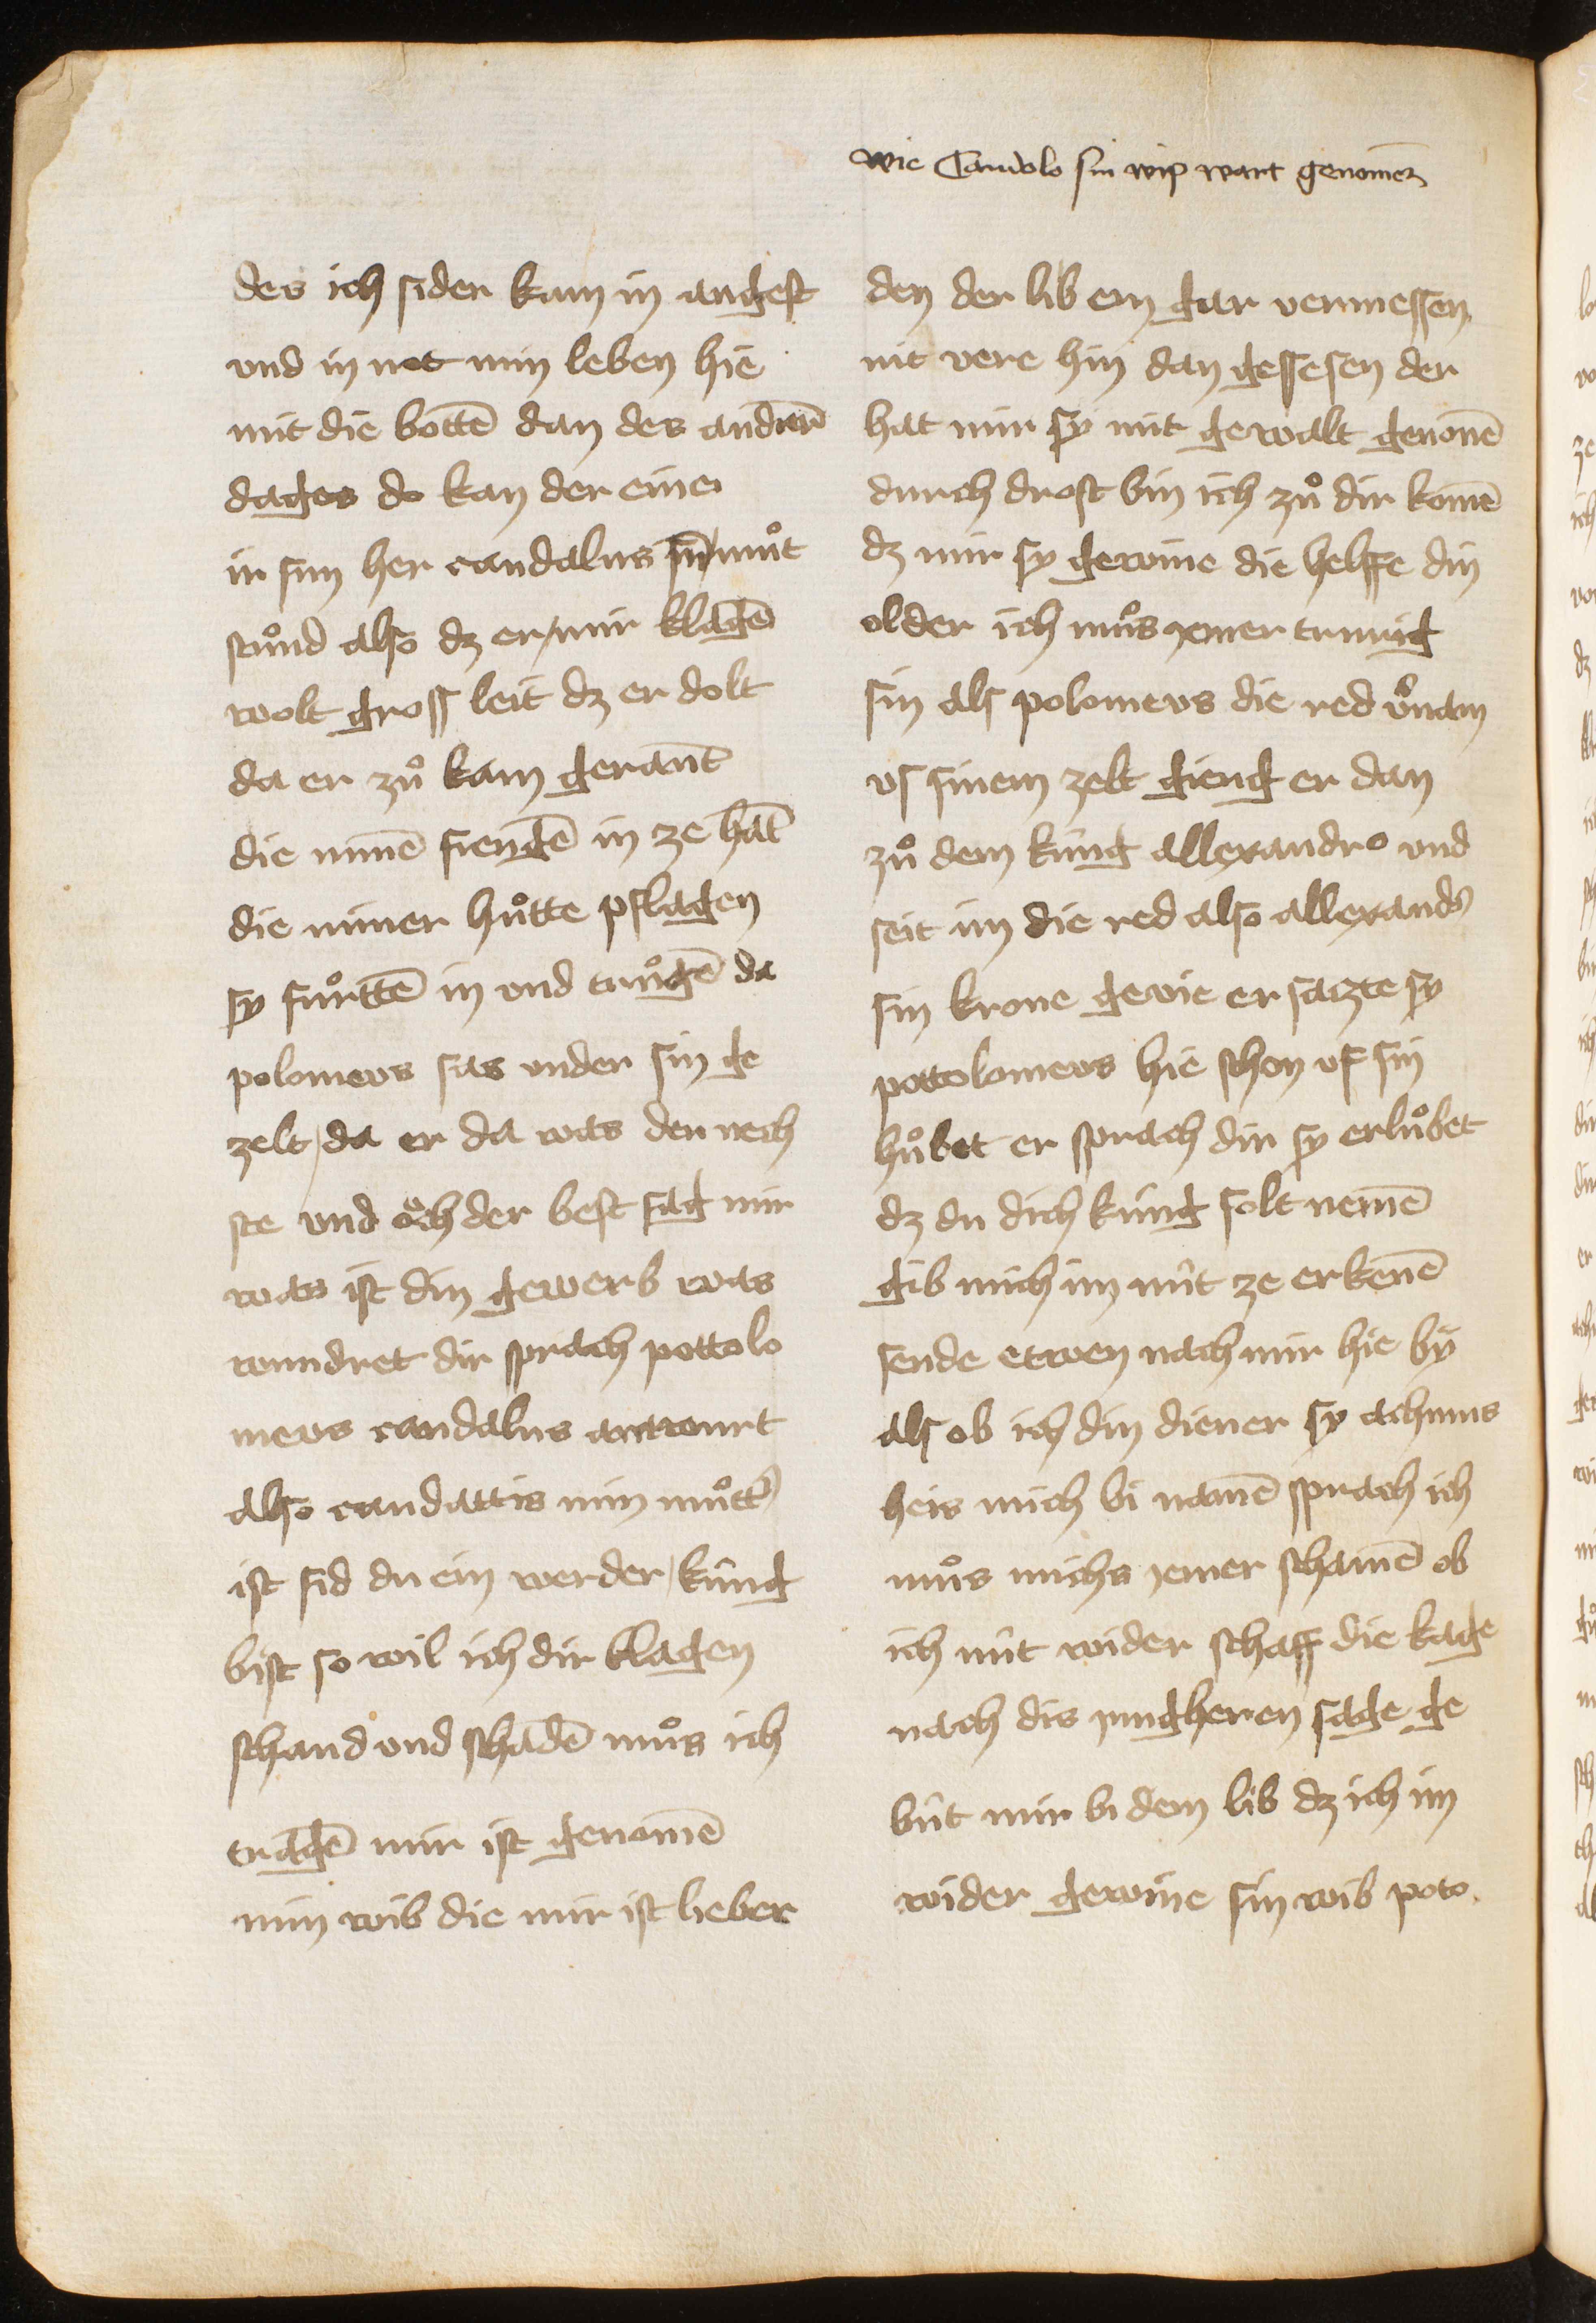 wie Candolo sin wip wart genomē
des ich sider kam in angest
vnd in not min leben hie
mit die bottē dan des andern
dages do kan der eine
ir sun her candalus sin muͦt
stuͦnd also dz er mir klagē
wolt gross leit dz er dolt
da er zuͦ kam gerant
die minē fiengē in ze hāt
die miner huͦtte pflagen
sy fuͦrttē in vnd truͦgē da
polomeus sas vnder sin ge
zelt da er da was der nech
ste vnd oͮch der best sag mir
was ist din gewerb was
wundret dir sprach pottolo
meus candalus antwurt
also candattis min muͦtt̓
ist sid du ein werder kúng
bist so wil ich dir klagen
schand vnd schadē muͦs ich
tragē mir ist genomē
min wib die mir ist lieber
den der lib ein gar vermessen
nit vere hin dan gessesen der
hat mir sy mit gewalt genomē
durch drost bin ich zuͦ dir komē
dz mir sy gewine die helffe din
older ich muͦs yemer trurig
sin als polomeus die red v̓nam
vs sinem zelt gieng er dan
zuͦ dem kúng allexandro vnd
seit im die red also allexand̓
sin krone gewie er sazte sy
pottolomeus hie schon vf sin
huͦbet er sprach dir sy erluͦbet
dz du dich kúng solt nemē
gib mich im nút ze erkenē
sende etwen nach mir hie by
als ob ich din diener sy achmus
heis mich bi namē sprach ich
muͦs michs yemer schamē ob
ich nút wider schaff die kage
nach dis jungheren sage ge
bút mir bi dem lib dz ich im
wider gewine sin wib poto